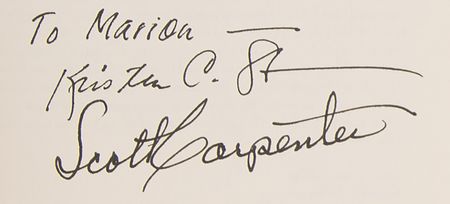 To Marion —
Kristen C. St
Scott Carpenter